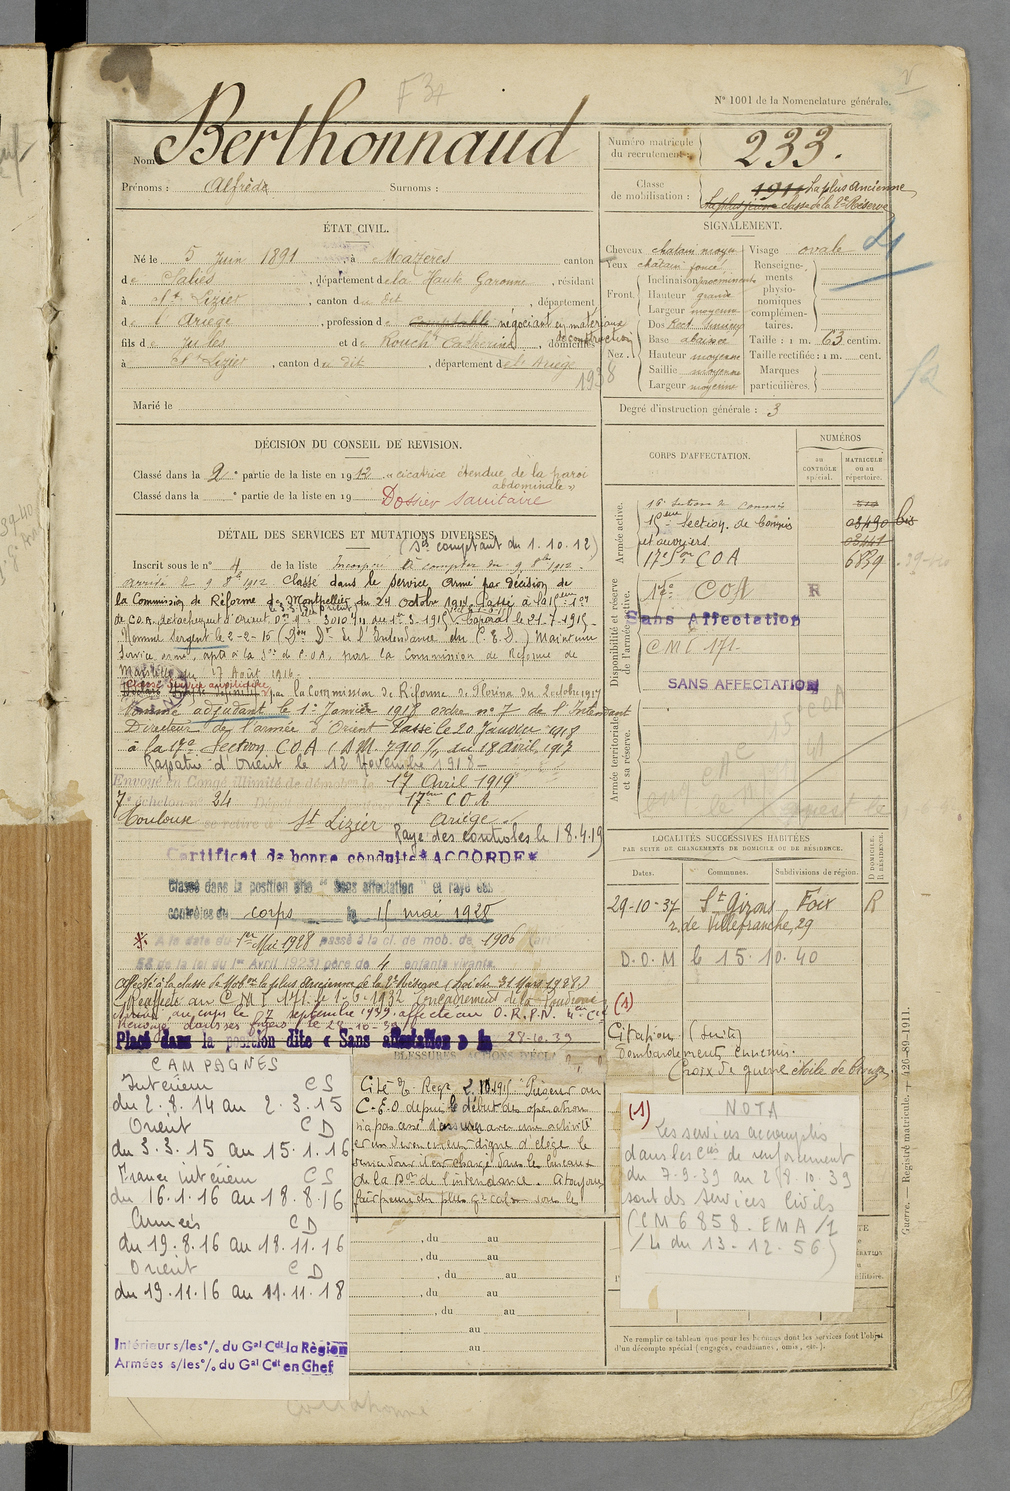 F 37
N° 1001 de la Nomenclature générale.
Nom Berthonnaud
Prénoms : Alfred Surnoms :
Numéro matricule du recrutement 233.
Classe de mobilisation : 1911 La plus ancienne
La plus jeune classe de la 2e Réserve
ÉTAT CIVIL.
Né le 5 Juin 1891, à Mazères canton
de Salies, département de la Haute Garonne, résidant
à St Lizier, canton du dit, département
de l'Ariège, profession de comptable négociant en matériaux de construction
fils de Jules et de Rouch Catherine, domiciliés
à St Lizier, canton du dit, département de l'Ariège
1938
Marié le
SIGNALEMENT.
Cheveux chatain moyen
Yeux chatain foncé
Front Inclinaison proéminent
Hauteur grande
Largeur moyenne
Nez Dos Rect. sinueux
Base abaissée
Hauteur moyenne
Saillie moyenne
Largeur moyenne
Visage ovale
Renseignements physionomiques complémentaires.
Taille : 1 m. 63 centim.
Taille rectifiée : 1 m. cent.
Marques particulières.
Degré d'instruction générale : 3
DÉCISION DU CONSEIL DE REVISION.
Classé dans la 2e partie de la liste en 1912 « cicatrice étendue de la paroi abdominale »
Classé dans la e partie de la liste en 19
Dossier Sanitaire
DÉTAIL DES SERVICES ET MUTATIONS DIVERSES.
(Sce comptant du 1.10.12)
Inscrit sous le n° 4 de la liste Incorporé à compter du 9 8bre 1912.
arrivé le 9 8bre 1912 Classé dans le service armé par décision de
la Commission de Réforme de Montpellier du 24 octobre 1914 Passé à la 15ème son
de C.O.A. détachement d'Orient
Caporal le 21-7-1915
Nommé Sergent le 2-2-16 de l'Intendance du C.E.O.) Maintenu
Service armé, apte à la Son de C.O.A. par la Commission de Réforme de
Marseille du 17 Août 1916
Classé service auxiliaire
par la Commission de Réforme de Florina du 2 octobre 1917
Nommé adjudant le 1er Janvier 1918 ordre no 7 de l'Intendant
Directeur de l'armée d'Orient Passé le 20 Janvier 1918
à la 17e Section C.O.A. (D.M. 7910 5/5 du 18 avril 1917
Rapatrié d'Orient le 12 Novembre 1918-
Envoyé en Congé illimité de démob. le 17 Avril 1919
7e échelon n° 24 Dépôt 17ème C.O.A
Toulouse se retire à St Lizier Ariège
Rayé des contrôles le 18.4.19
Certificat de bonne conduite * ACCORDÉ *
Classé dans la position dite "Sans affectation" et rayé des
contrôles du corps le 15 mai 1928
* A la date du 1er Mai 1928 passé à la cl. de mob. de 1906 (art
58 de la loi du 1er Avril 1923) père de 4 enfants vivants.
Affecté à la classe de Mobon la plus ancienne de la 2e Réserve (Loi du 31 Mars 1928)
Réaffecté au C.M.I. 171. le 1-6-1932 Encadrement de la Poudrerie
Arrivé au corps le 7 septembre 1939. affecté au D.R.P.N. 4ème Cie
Renvoyé dans ses foyers le 28-10-39
Placé dans la position dite « Sans affectation » le 28.10.39
CORPS D'AFFECTATION.
NUMÉROS
au CONTRÔLE spécial.
MATRICULE ou au répertoire.
Armée active.
16e Section de Commis
15ème Section de Commis et ouvriers
08490 bis
08441
17e Son C O A 6839
Disponibilité et réserve de l'armée active.
17e COA R
Sans Affectation
C M I 171.
SANS AFFECTATION
Armée territoriale et sa réserve.
LOCALITÉS SUCCESSIVES HABITÉES
PAR SUITE DE CHANGEMENTS DE DOMICILE OU DE RÉSIDENCE.
Dates. Communes. Subdivisions de région. D DOMICILE. R RÉSIDENCE.
29-10-37 St Girons Foix R
r. de Villefranche, 29
D.O.M le 15.10.40
(1)
Citation (suite)
bombardements ennemis.
Croix de guerre étoile de bronze.
CAMPAGNES
Intérieur CS
du 2.8.14 au 2.3.15
Orient CD
du 3.3.15 au 15.1.16
France intérieur CS
du 16.1.16 au 18.8.16
Armées CD
du 19.8.16 au 18.11.16
Orient CD
du 19.11.16 au 11.11.18
Intérieur s/les °/. du Gal Cdt la Région
Armées s/les °/. du Gal Cdt en Chef
BLESSURES, ACTIONS D'ÉCLAT
Cité à Regt 2.10.1915 Présent au
C.E.O depuis le début des opérations
n'a pas cessé d'assurer avec une activité
et un dévouement digne d'éloge le
service dont il est chargé dans les bureaux
de la Don de l'intendance. A toujours
fait preuve du plus gd calme sous les
, du au
, du au
, du au
, du au
, du au
au
au
(1) NOTA
Les services accomplis
dans les Cies de renforcement
du 7-9-39 au 28.10.39
sont des services Civils
(CM 6858. EMA/1
/L du 13-12.56)
Ne remplir ce tableau que pour les hommes dont les services font l'objet
d'un décompte spécial (engagés, condamnés, omis, etc.).
Guerre. — Registre matricule. — 426-89-1911.